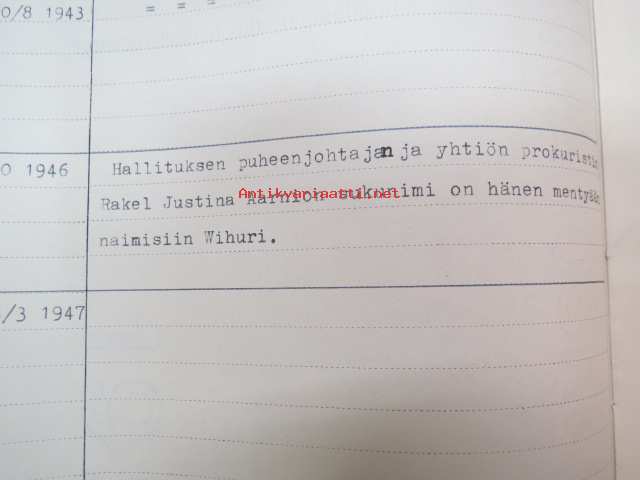 0/8 1943 = = =
0 1946 Hallituksen puheenjohtajan ja yhtiön prokuristin
Rakel Justina sukunimi on hänen mentyään
Antikvariaattui.net
naimisiin Wihuri.
/3 1947